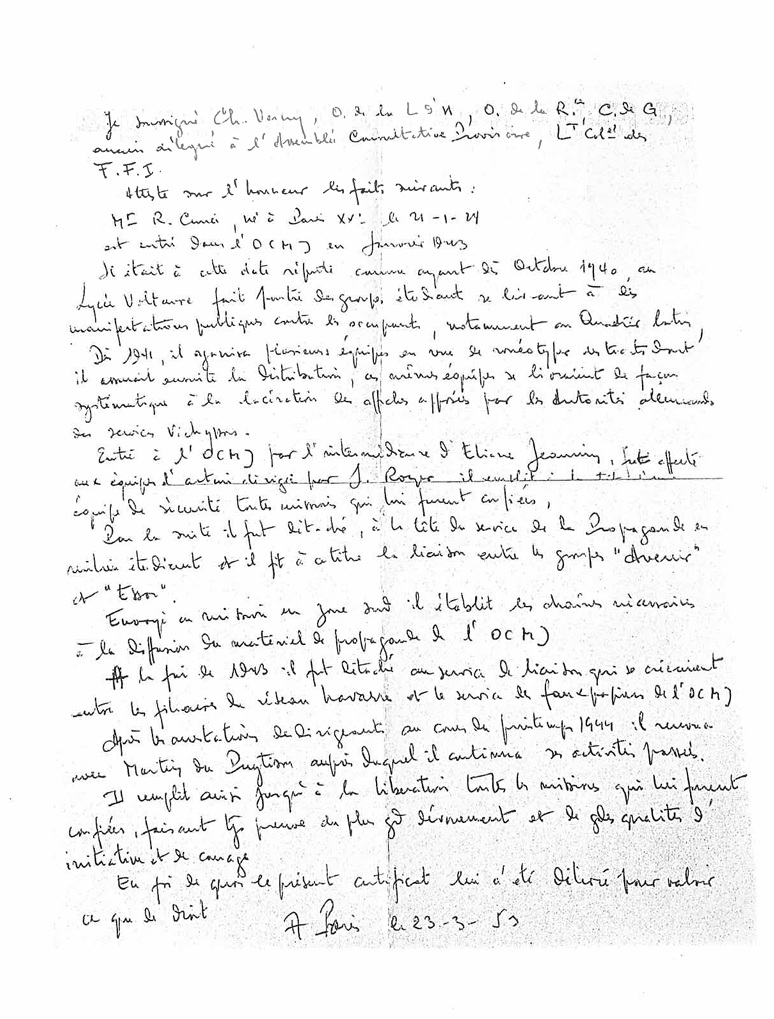 Je soussigné Ch. Verny, O. de la L d'H, O. de la R.ce C. de G,
ancien délégué à l'Assemblée Consultative Provisoire, LT Colel des
F.F.I.
Atteste sur l'honneur les faits suivants :
Mr R. né à Paris XVe le 21-1-24
est entré dans l'OCMJ en Janvier 1943
Il était à cette date réputé comme ayant dès Octobre 1940, au
Lycée Voltaire fait partie des groupes étudiant se livrant à des
manifestations publiques contre les occupants, notamment au Quartier latin,
Dès 1941, il organisa plusieurs équipes en vue de ronéotyper des tracts dont
il assurait ensuite la distribution, ces mêmes équipes se livraient de façon
systématique à la lacération des affiches apposées par les Autorités allemandes
des services Vichyssois.
Entré à l'OCMJ par l'intermédiaire d'Eliane Jeannin, fut affecté
aux équipes d'action dirigé par J. Roger il remplit
équipe de sécurité toutes missions qui lui furent confiées,
Par la suite il fut détaché, à la tête du service de la Propagande en
milieu étudiant et il fit à ce titre la liaison entre les groupes "Avenir"
et "Essor".
Envoyé en mission en zone sud il établit les chaînes nécessaires
à la diffusion du matériel de propagande de l'OCMJ
A la fin de 1943 il fut détaché au service de liaison qui se créèrent
entre les filières du réseau navarre et le service de faux papiers de l'OCMJ
Après les arrestations de dirigeants au cours du printemps 1944 il renoua
avec Martin du auprès duquel il continua ses activités passées.
Il remplit ainsi jusqu'à la libération toutes les missions qui lui furent
confiées, faisant tjs preuve du plus gd dévouement et de gdes qualités d'
initiative et de courage
En foi de quoi le présent certificat lui a été délivré pour valoir
ce que de droit
A Paris le 23-3-53